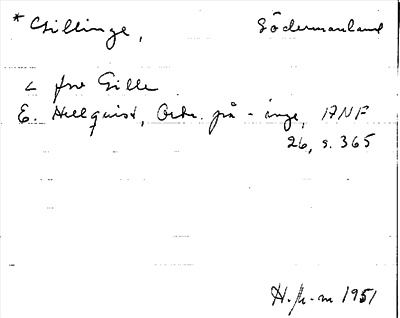 * Gillinge, Södermanland
< fsv Gille
E. Hellquist, Ortn. på -inge, ANF
26, s. 365
H. 1951